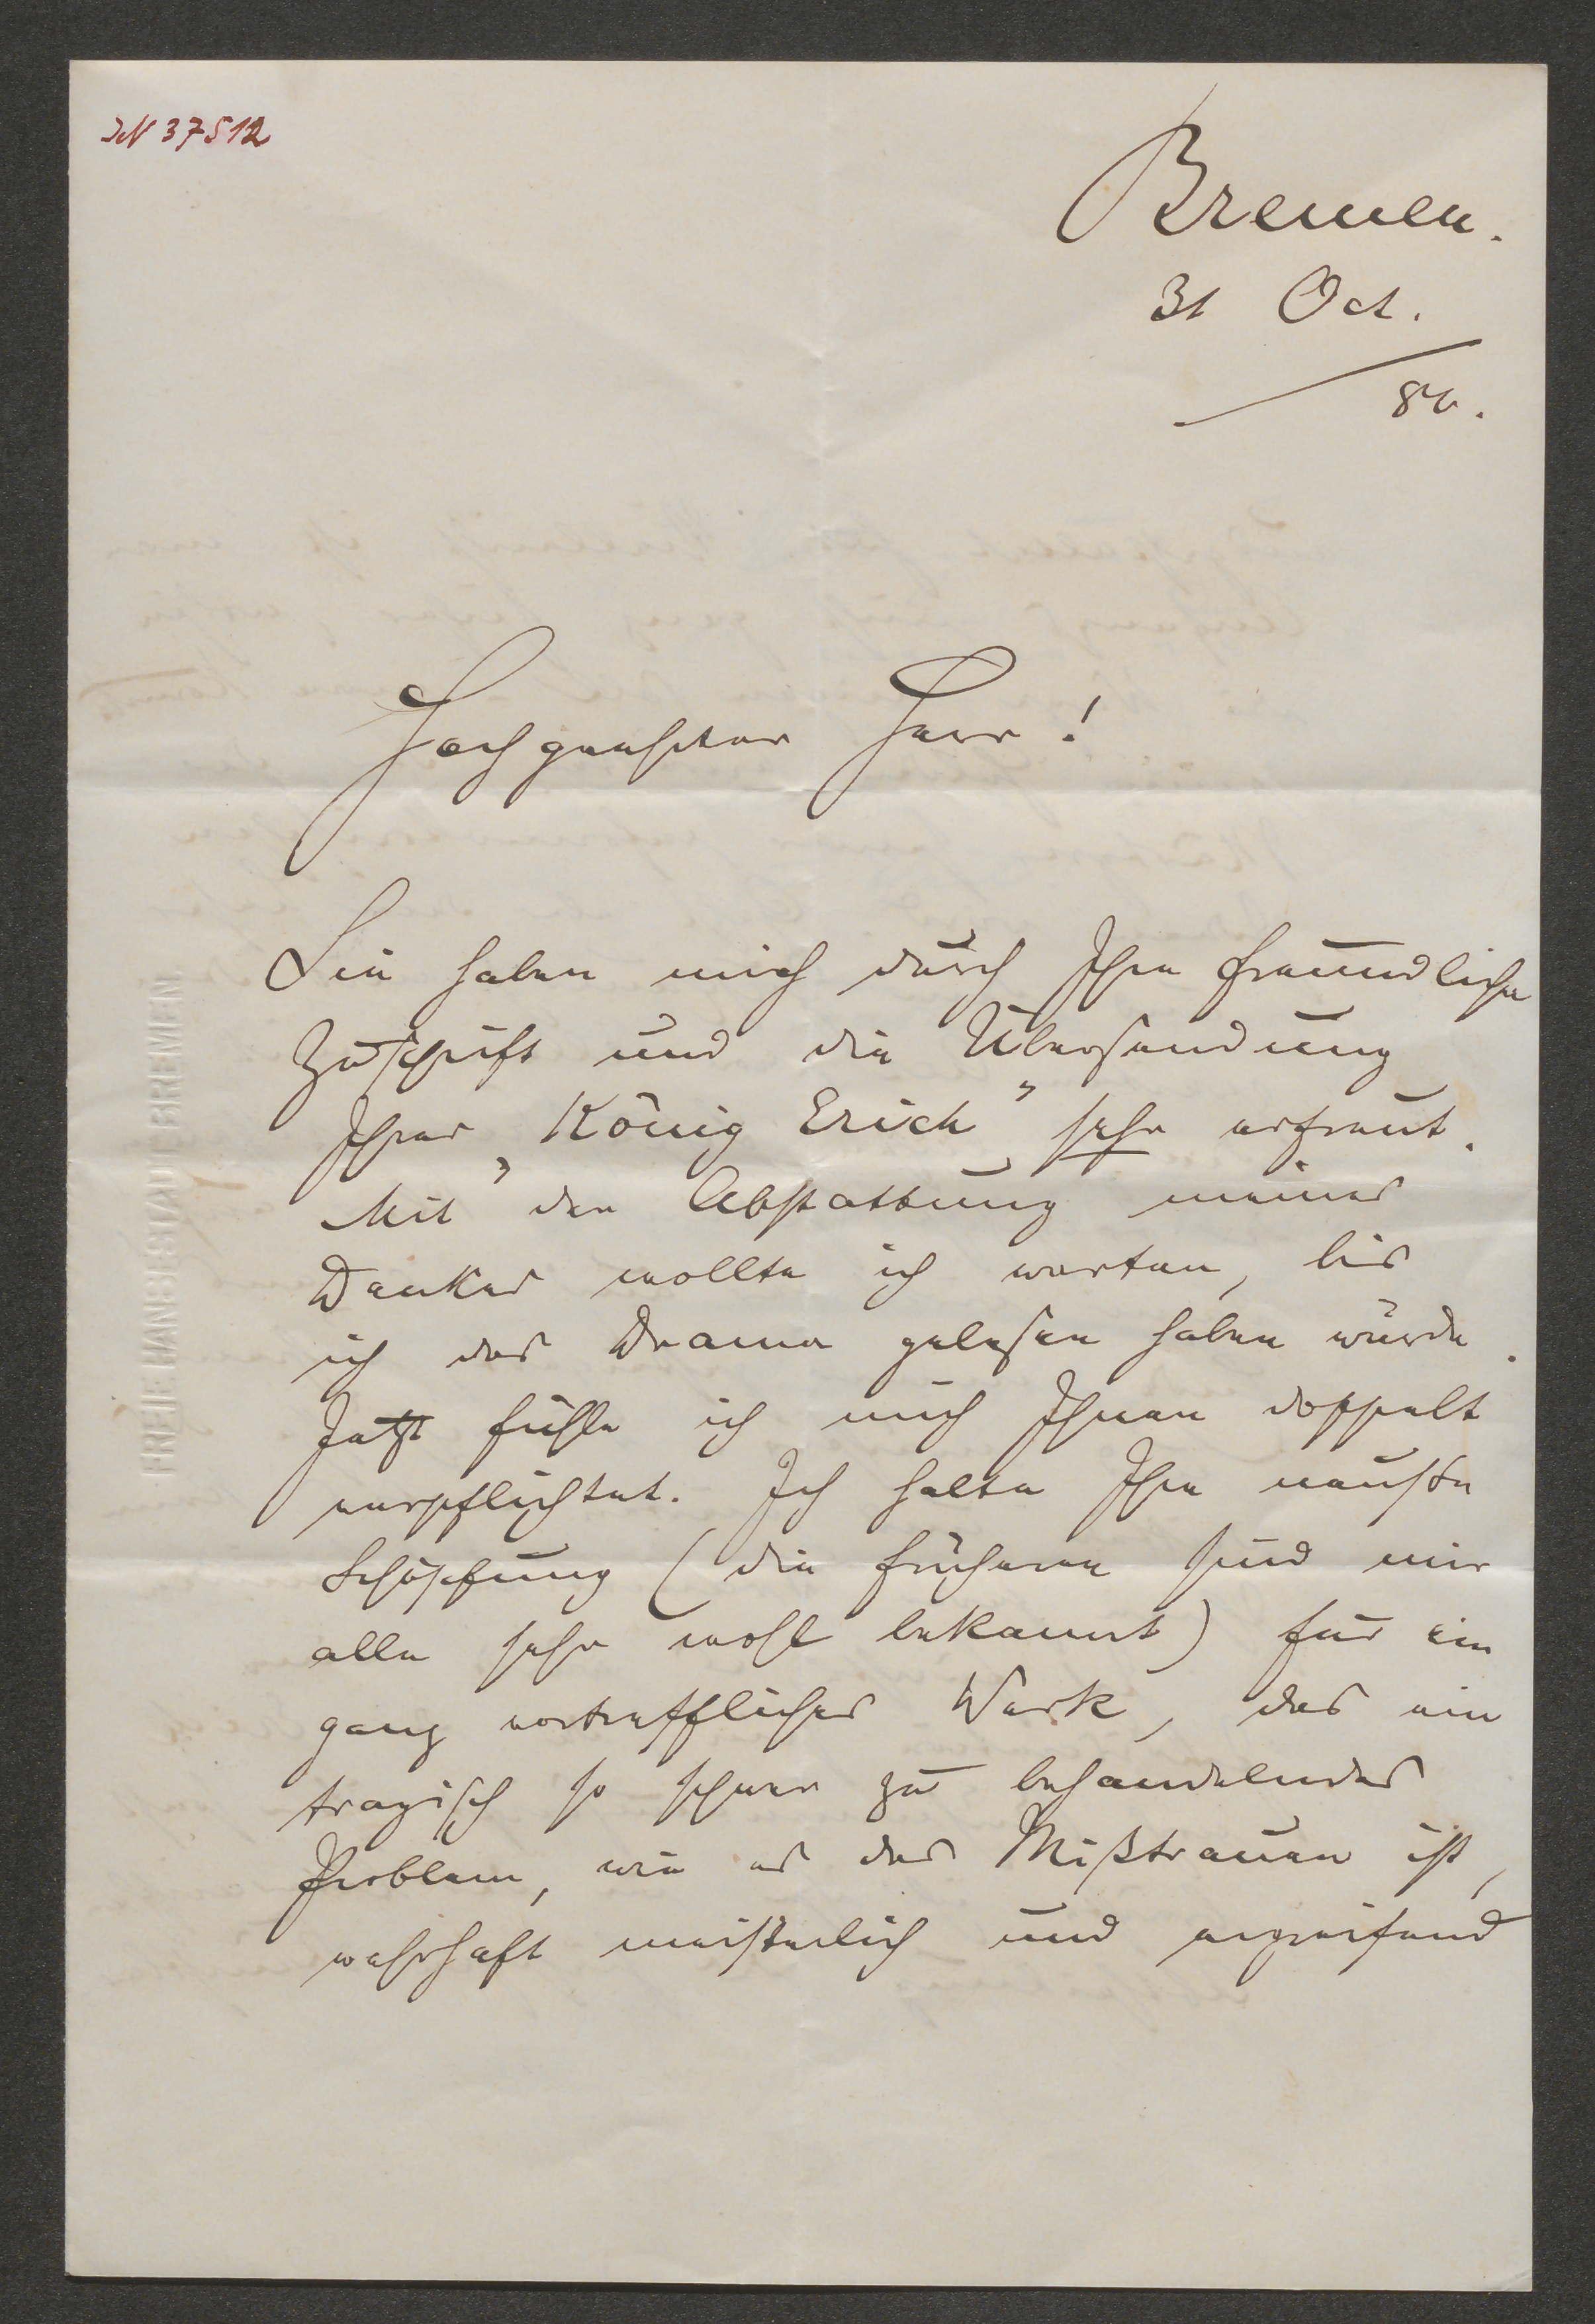 IN 37512
Bremen.
31 Oct.
80.
Hochgeehrter Herr!
Sie haben mich durch Ihre freundliche
Zuschrift und die Übersendung
Ihres „König Erich“ sehr erfreut.
Mit der Abstattung meines
Dankes wollte ich warten, bis
ich das Drama gelesen haben würde.
Jetzt fühle ich mich Ihnen doppelt
verpflichtet. Ich halte Ihre neuste
Schöpfung (die früheren sind mir
alle sehr wohl bekannt) für ein
ganz vortreffliches Werk, das ein
tragisch so schwer zu behandelndes
Problem, wie es das Mißtrauen ist,
wahrhaft meisterlich und ergreifend
FREIE HANSESTADT BREMEN